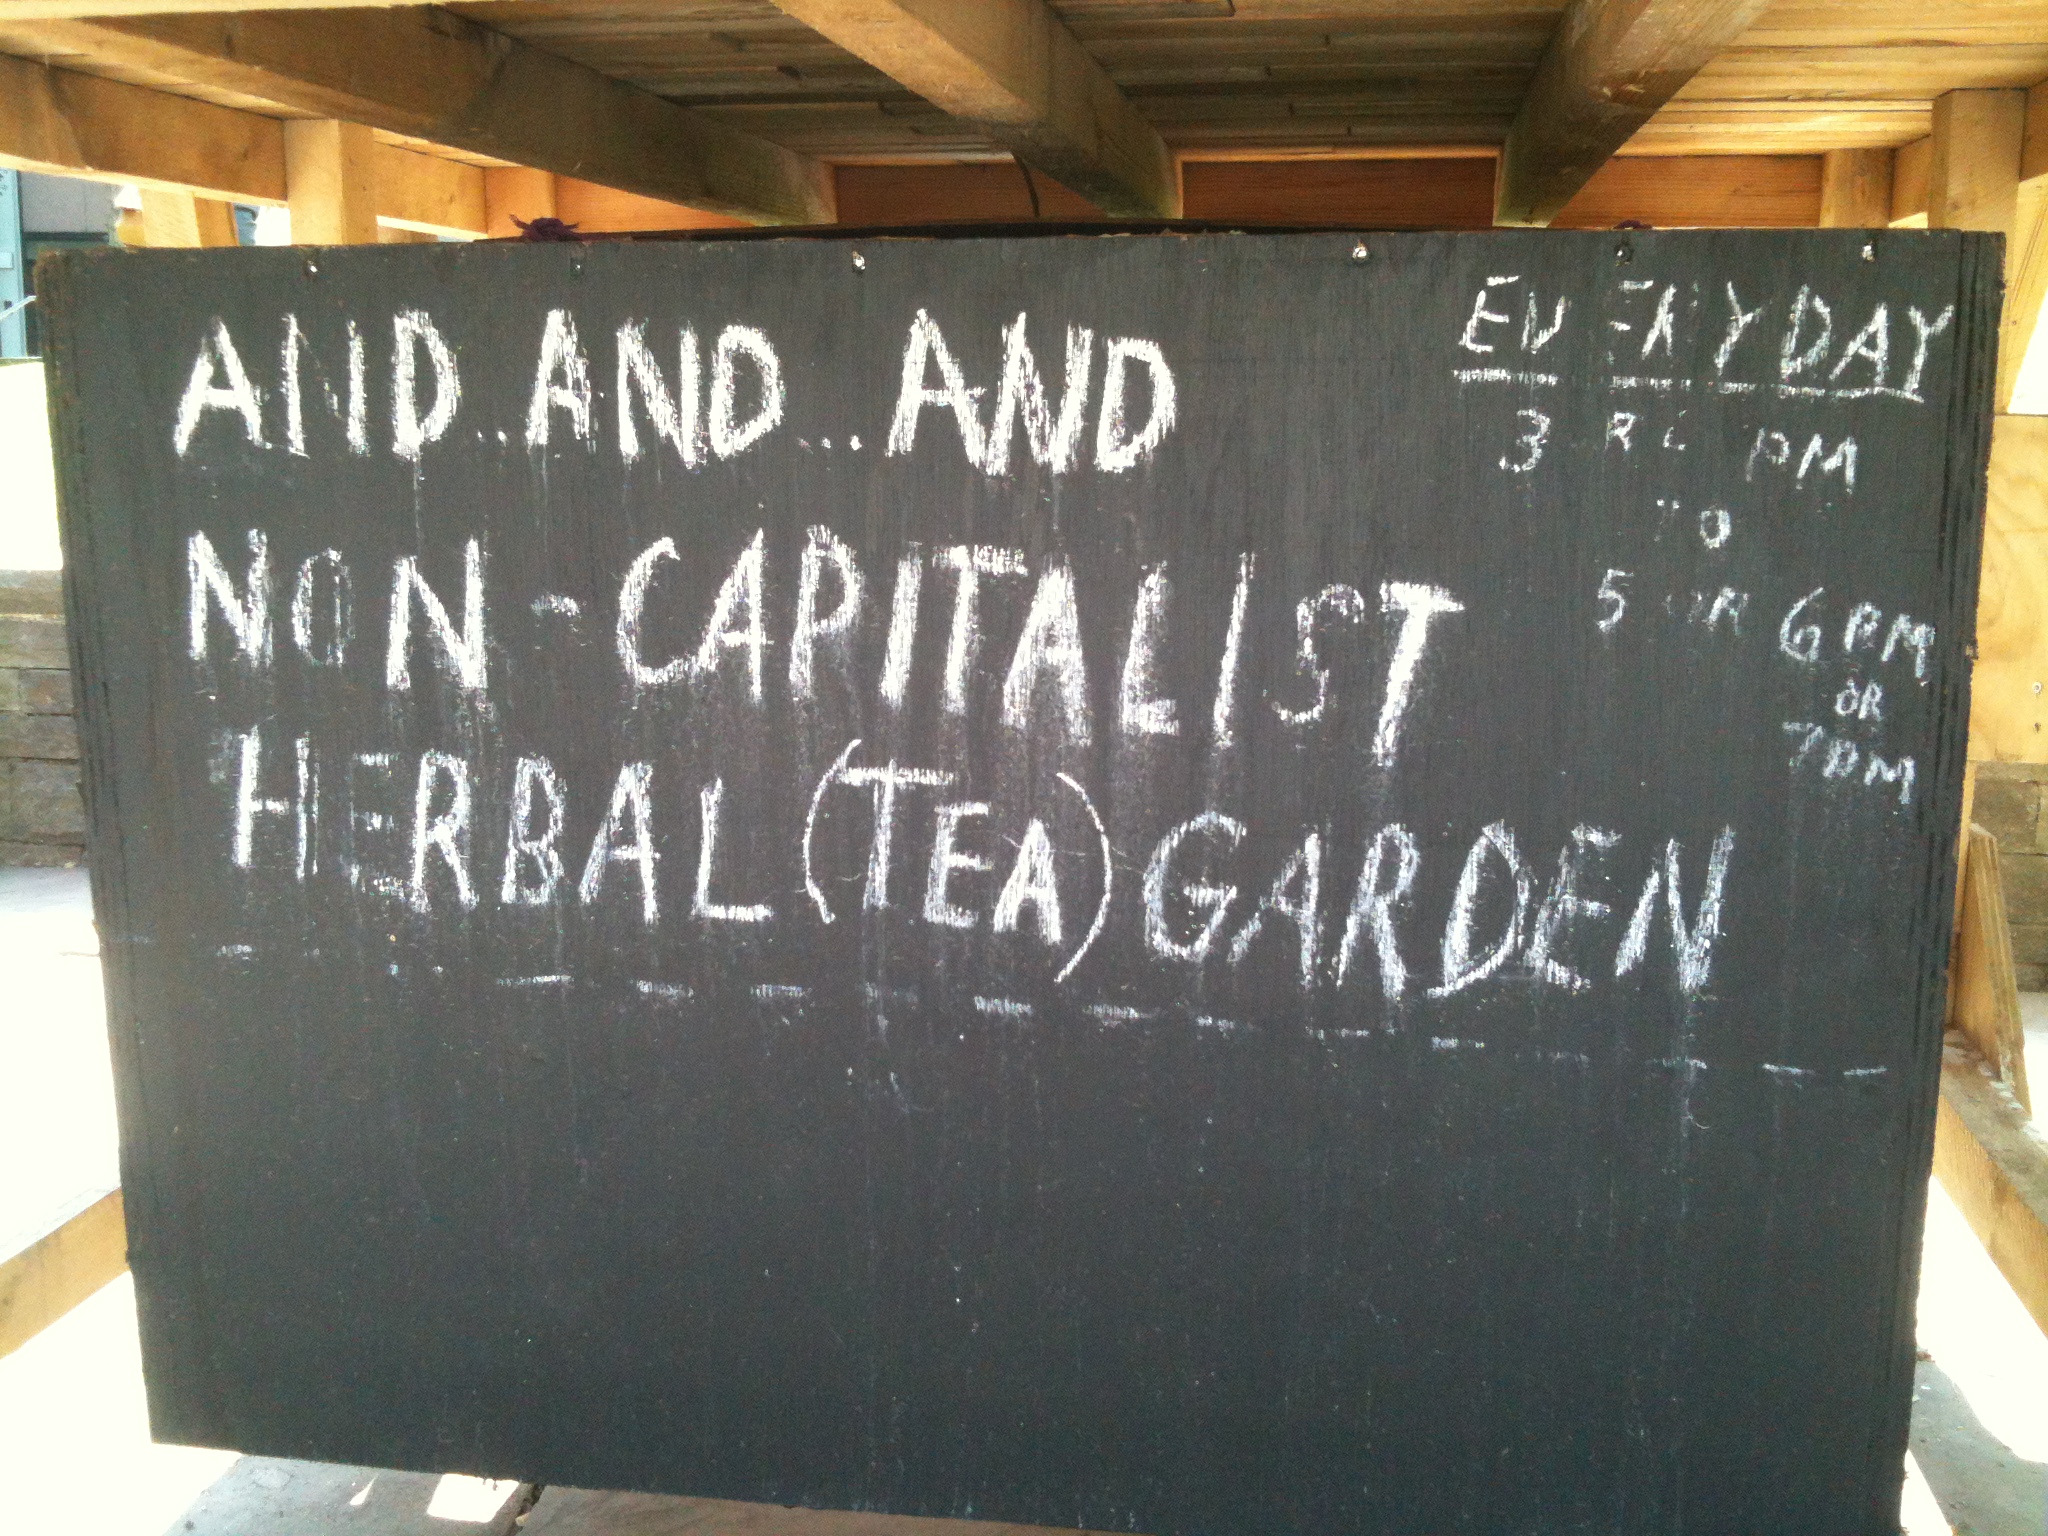 AND...AND...AND
NON-CAPITALIST
HERBAL (TEA) GARDEN
EVERYDAY
3 PM
TO
5 OR 6PM
OR
7PM